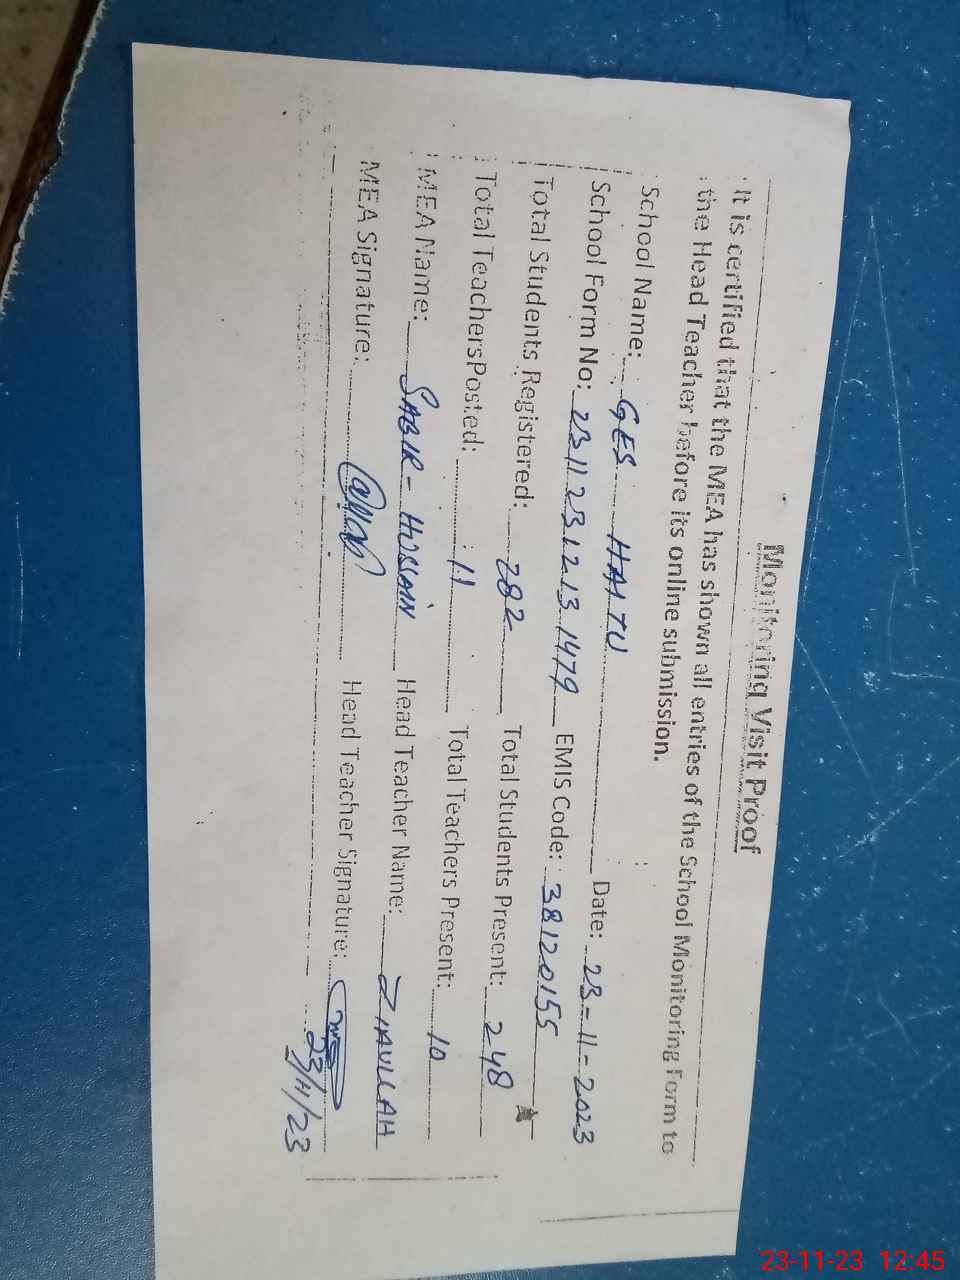 Monitoring Visit Proof
It is certified that the MEA has shown all entries of the School Monitoring Form to
the Head Teacher before its online submission.
School Name: GES HAITU Date: 23-11-2023
School Form No: 23112312131479 EMIS Code: 38120155
Total Students Registered: 282 Total Students Present: 248
Total TeachersPosted: 11 Total Teachers Present: 10
MEA Name: SABIR-HUSSAIN Head Teacher Name: ZIAULLAH
MEA Signature: Head Teacher Signature:
23/11/23
23-11-23 12:45